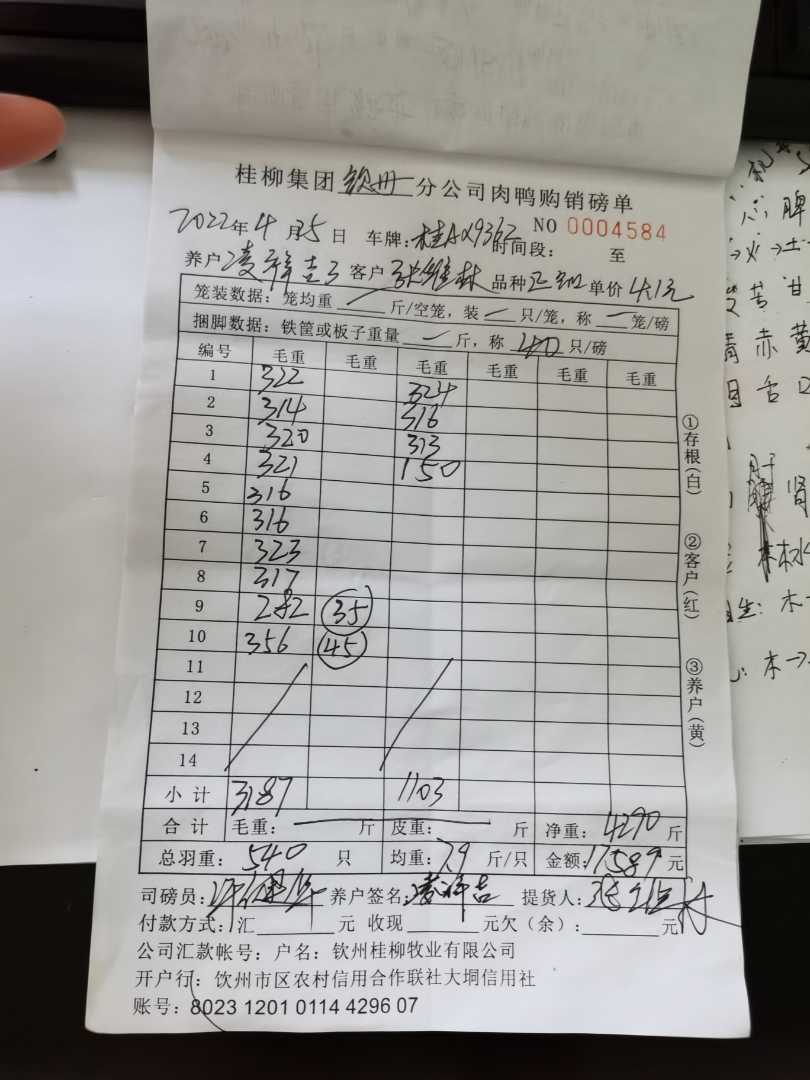 桂柳集团 钦州 分公司肉鸭购销磅单
2022年4月5日 车牌:桂AQ9362 时间段: 至 NO 0004584
养户 凌祥吉 客户 张维林 品种 单价 4.1元
笼装数据:笼均重 一 斤/空笼,装 一 只/笼,称 一 笼/磅
捆脚数据:铁筐或板子重量 一 斤,称 40 只/磅
编号 毛重 毛重 毛重 毛重 毛重 毛重
1 322 324
2 314 316
3 320 313
4 321 150
5 316
6 316
7 323
8 317
9 282 35
10 356 45
11
12
13
14
小计 3187 1103
合计 毛重: 斤 皮重: 斤 净重:4290 斤
总羽重:540 只 均重:7.9 斤/只 金额:17589 元
司磅员: 养户签名:凌祥吉 提货人:
付款方式:汇 元 收现 元欠(余): 元
公司汇款帐号:户名:钦州桂柳牧业有限公司
开户行:饮州市区农村信用合作联社大垌信用社
账号:8023 1201 0114 4296 07
①存根(白)
②客户(红)
③养户(黄)
脾
苦 甘
青 赤 黄
目 舌 口
肝
肾